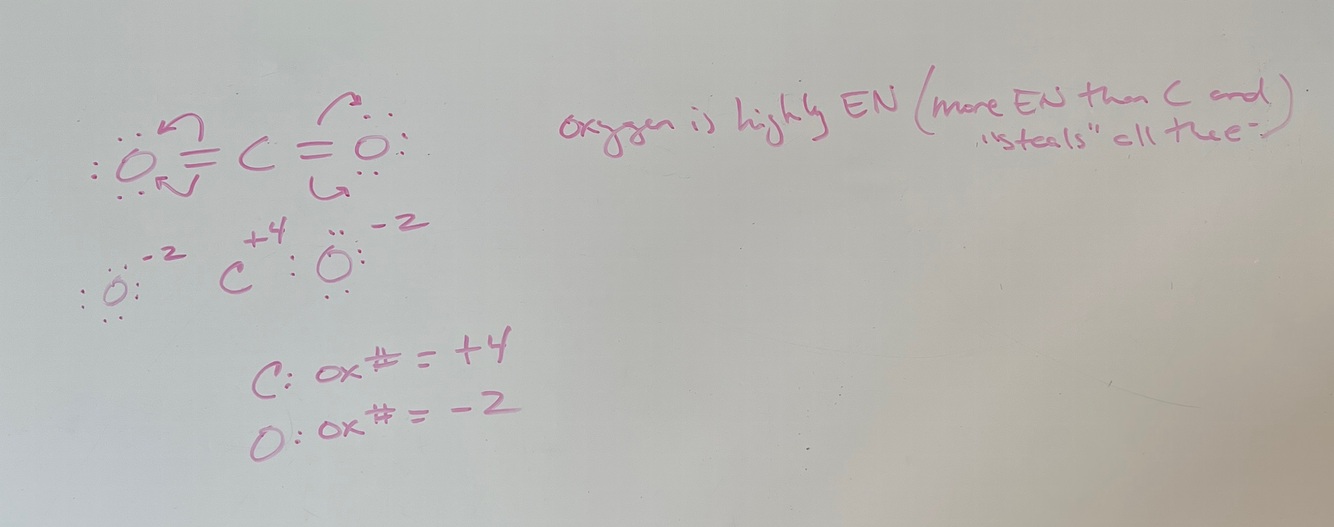 :Ö=C=Ö:
oxygen is highly EN (more EN than C and
"steals" all the e-)
:Ö:-2 C+4 :Ö:-2
C: ox# = +4
O: ox# = -2